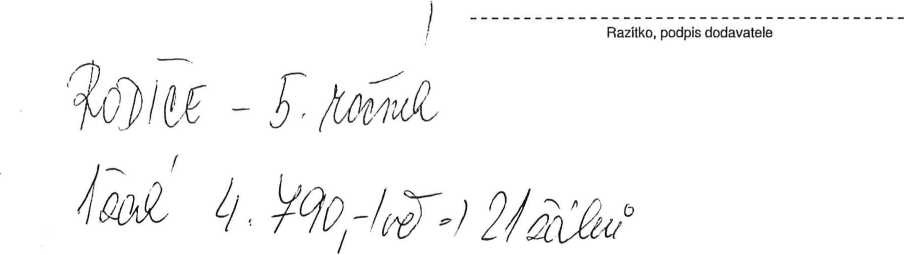 Razítko, podpis dodavatele
RODIČE - 5. ročník
4. 790,- Kč 21 žáků